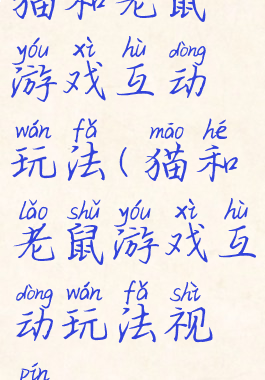 猫和老鼠
yóu xì hù dòng
游戏互动
wán fǎ māo hé
玩法(猫和
lǎo shǔ yóu xì hù
老鼠游戏互
dòng wán fǎ shì
动玩法视
pín